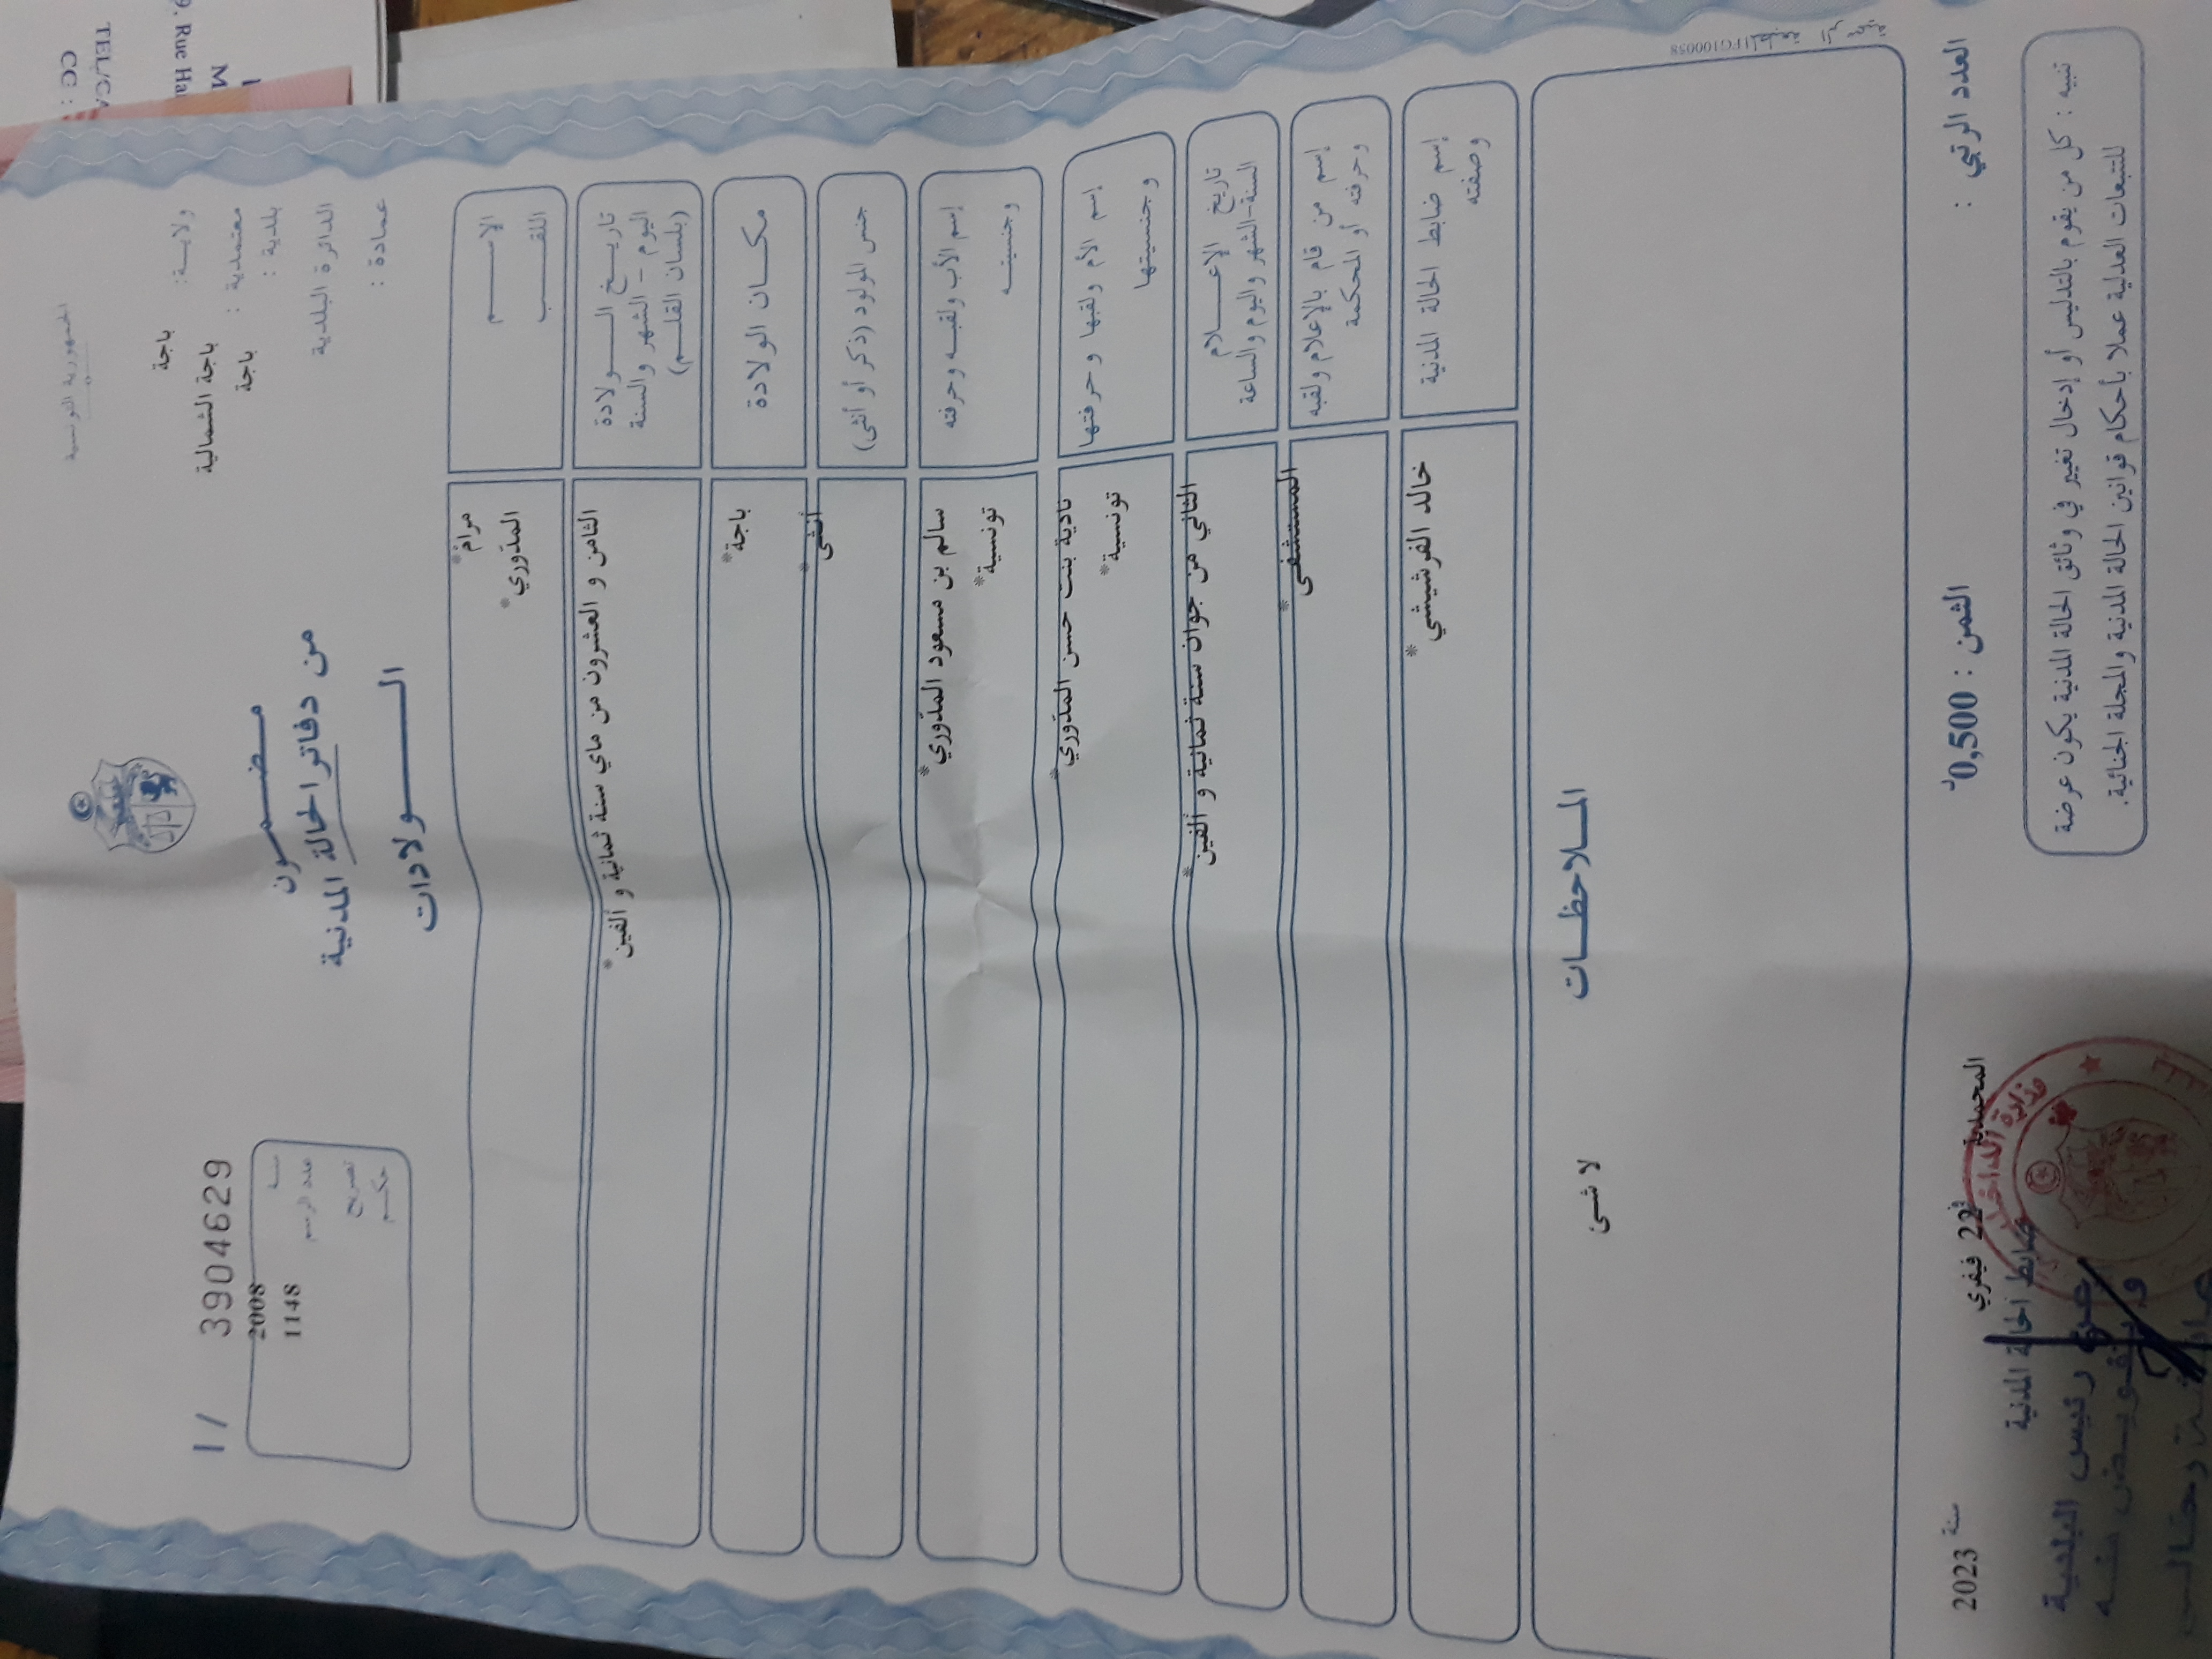 الجمهورية التونسية
ولاية : باجة
معتمدية : باجة الشمالية
بلدية : باجة
الدائرة البلدية
عمادة :
مضمون
من دفاتر الحالة المدنية
الولادات
1/ 3904629
سنة 2008
عدد الرسم 1148
تصريح
حكم
الاسم مرام*
اللقب المدوري*
تاريخ الولادة الثامن و العشرون من ماي سنة ثمانية و ألفين*
اليوم - الشهر والسنة
(بلسان القلم)
مكان الولادة باجة*
جنس المولود (ذكر أو أنثى) أنثى*
إسم الأب ولقبه وحرفته سالم بن مسعود المدوري*
وجنسيته تونسية*
إسم الأم ولقبها وحرفتها نادية بنت حسن المدوري*
وجنسيتها تونسية*
تاريخ الإعلام الثاني من جوان سنة ثمانية و ألفين*
السنة-الشهر واليوم والساعة
إسم من قام بالإعلام ولقبه المستشفى*
وحرفته أو المحكمة
إسم ضابط الحالة المدنية خالد الفرشيشي*
وصفته
الملاحظات
لا شئ
FG100058
العدد الرتبي :
الثمن : 0,500د
المحمدية في 22 فيفري سنة 2023
ضابط الحالة المدنية
وزارة الداخلية
رئيس البلدية
وبتفويض منه
تنبيه : كل من يقوم بالتدليس أو إدخال تغيير في وثائق الحالة المدنية يكون عرضة
للتتبعات العدلية عملا بأحكام قوانين الحالة المدنية والمجلة الجنائية.
9. Rue Ha
M
TEL/CA
CC :